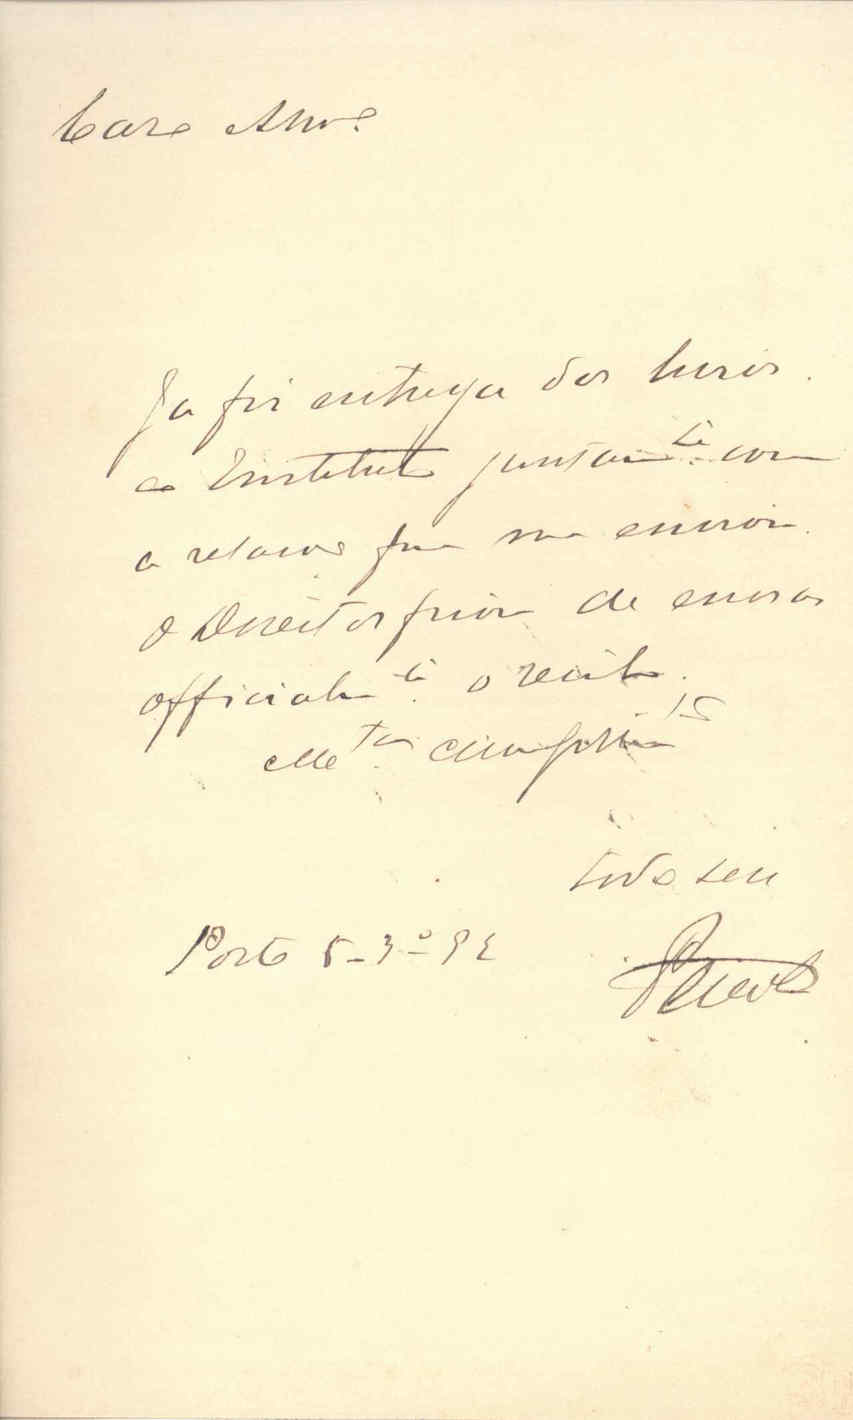 Caro Am.º
Ja fiz entrega dos livros
ao Instituto juntam.te com
a relacao que me enviou.
O Director ficou de enviar
officialm.te o recibo.
M.tos cumprim.tos
todo seu
Porto 5-3º-92